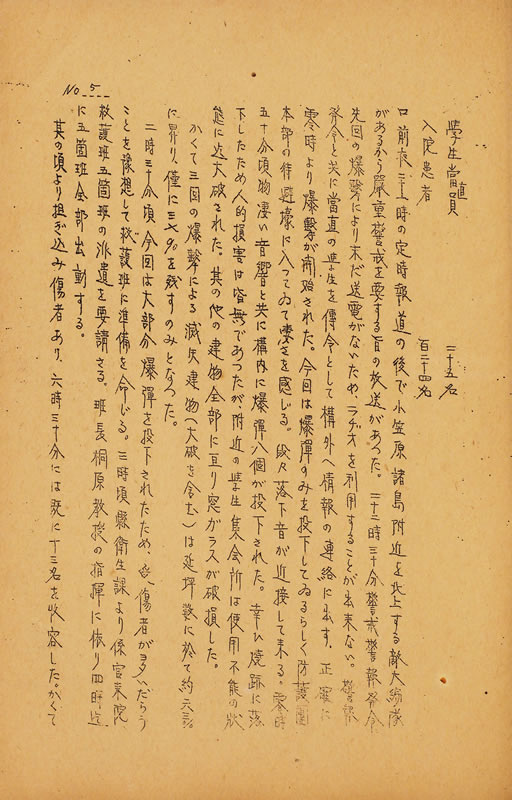 No. 5
學生當直員 二十五名
入院患者 百二十四名
□前夜二十一時の定時報道の後で小笠原諸島附近を北上する敵大編隊
があるから嚴重警戒を要する旨の放送があつた。二十二時三十分警戒警報發令
先回の爆撃により未だ送電がないため、ラヂオを利用することが出来ない。警報
發令と共に當直の學生を傳令として構外へ情報の連絡に出す、正確に
零時より爆撃が開始された。今回は爆彈のみを投下してゐるらしく防護團
本部の待避壕に入つてゐて凄さを感じる。段々落下音が近接して来る。零時
五十分頃物凄い音響と共に構内に爆彈八個が投下された。幸ひ燒跡に落
下したため人的損害は皆無であつたが附近の學生集会所は使用不能の狀
態に近大破された。其の他の建物全部に亙り窓ガラスが破損した。
かくて三回の爆撃による滅失建物(大破を含む)は延坪數に於て約六
に昇り、僅に三〇%を殘すのみとなつた。
二時三十分頃今回は大部分爆彈を投下されたため、死傷者が多いだらう
ことを豫想して救護班に準備を命じる。三時頃縣衛生課より係官来院
救護班五箇班の派遣を要請さる、班長桐原教授の指揮に依り四時迄
に五箇班全部出動する。
其の頃より担ぎ込み傷者あり、六時三十分には既に十三名を收容した。かくて